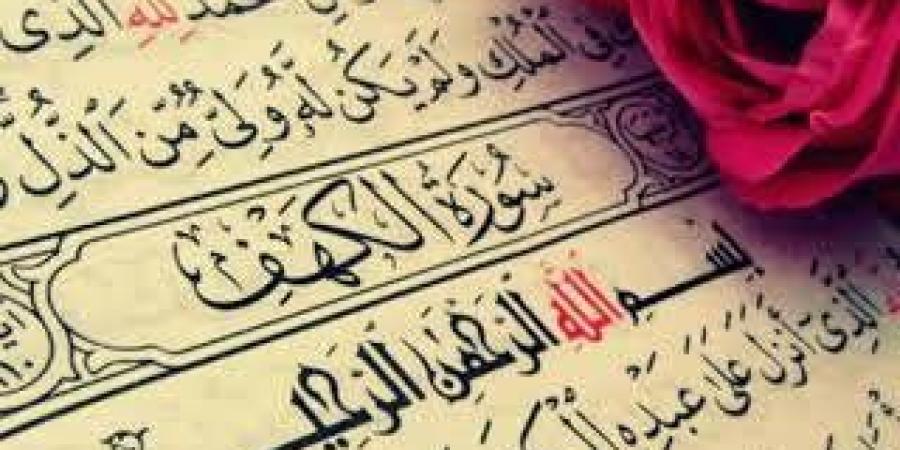 حَمْدُ لِلَّهِ الَّذِى
فِى الْمُلْكِ وَلَمْ يَكُن لَّهُ وَلِىٌّ مِّنَ الذُّلِّ
سُورَةُ الْكَهْفِ
اياتها ١١٠
بِسْمِ اللَّهِ الرَّحْمَٰنِ الرَّحِيمِ
الَّذِى أَنزَلَ عَلَىٰ عَبْدِهِ